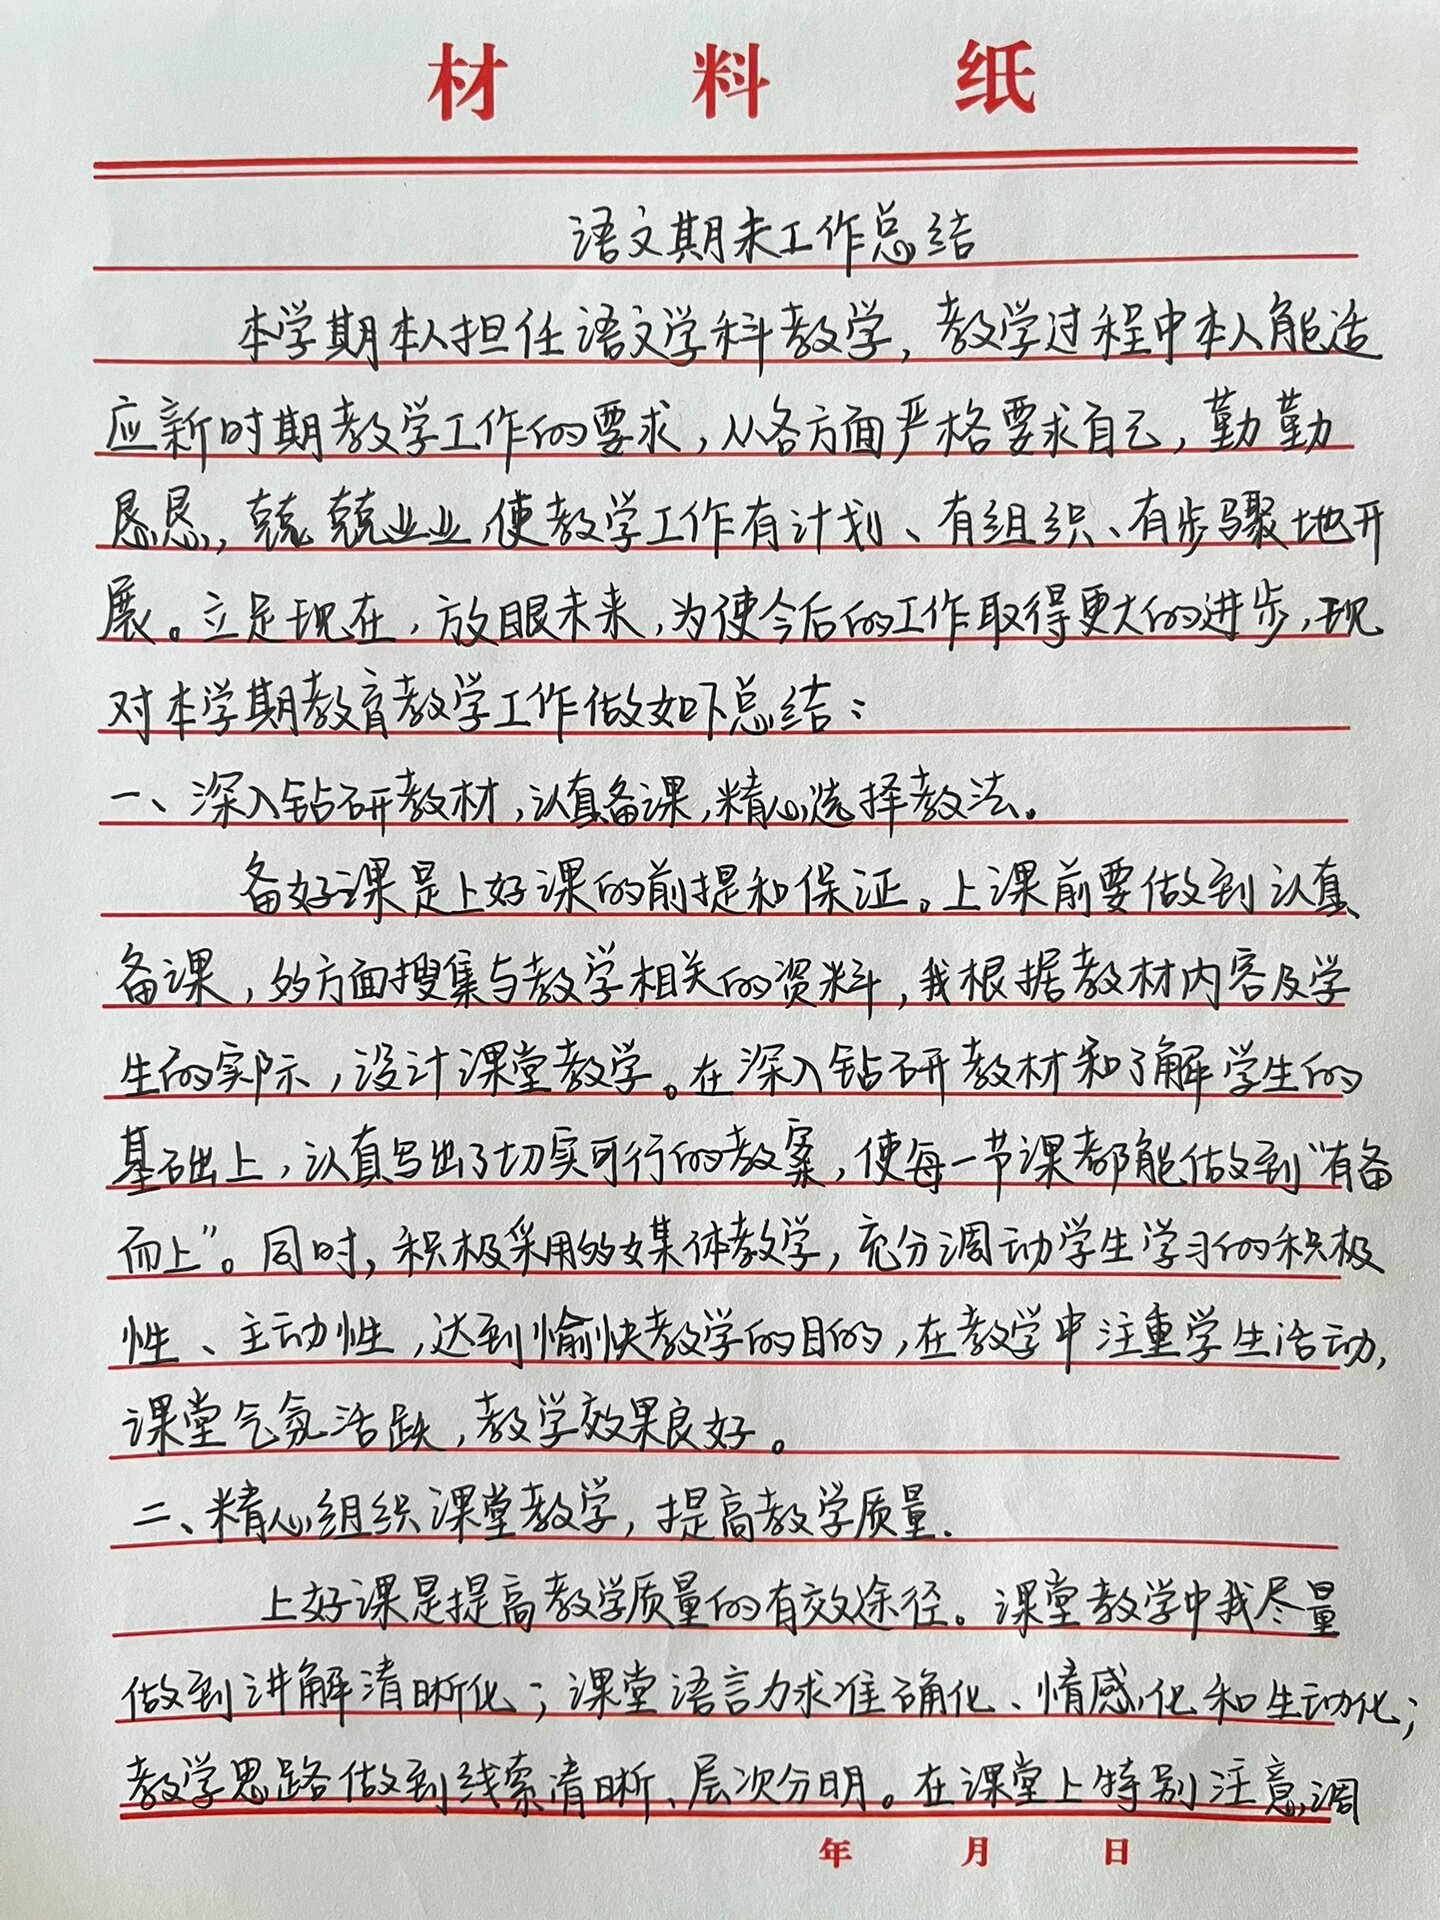 材料纸
语文期末工作总结
本学期本人担任语文学科教学，教学过程中本人能适
应新时期教学工作的要求，从各方面严格要求自己，勤勤
恳恳，兢兢业业，使教学工作有计划、有组织、有步骤地开
展。立足现在，放眼未来，为使今后的工作取得更大的进步，现
对本学期教育教学工作做如下总结：
一、深入钻研教材，认真备课，精心选择教法。
备好课是上好课的前提和保证。上课前要做到认真
备课，多方面搜集与教学相关的资料，我根据教材内容及学
生的实际，设计课堂教学。在深入钻研教材和了解学生的
基础上，认真写出了切实可行的教案，使每一节课都能做到“有备
而上”。同时，积极采用多媒体教学，充分调动学生学习的积极
性、主动性，达到愉快教学的目的，在教学中注重学生活动，
课堂气氛活跃，教学效果良好。
二、精心组织课堂教学，提高教学质量.
上好课是提高教学质量的有效途径。课堂教学中我尽量
做到讲解清晰化；课堂语言力求准确化、情感化和生动化；
教学思路做到线索清晰、层次分明。在课堂上特别注意调
年 月 日